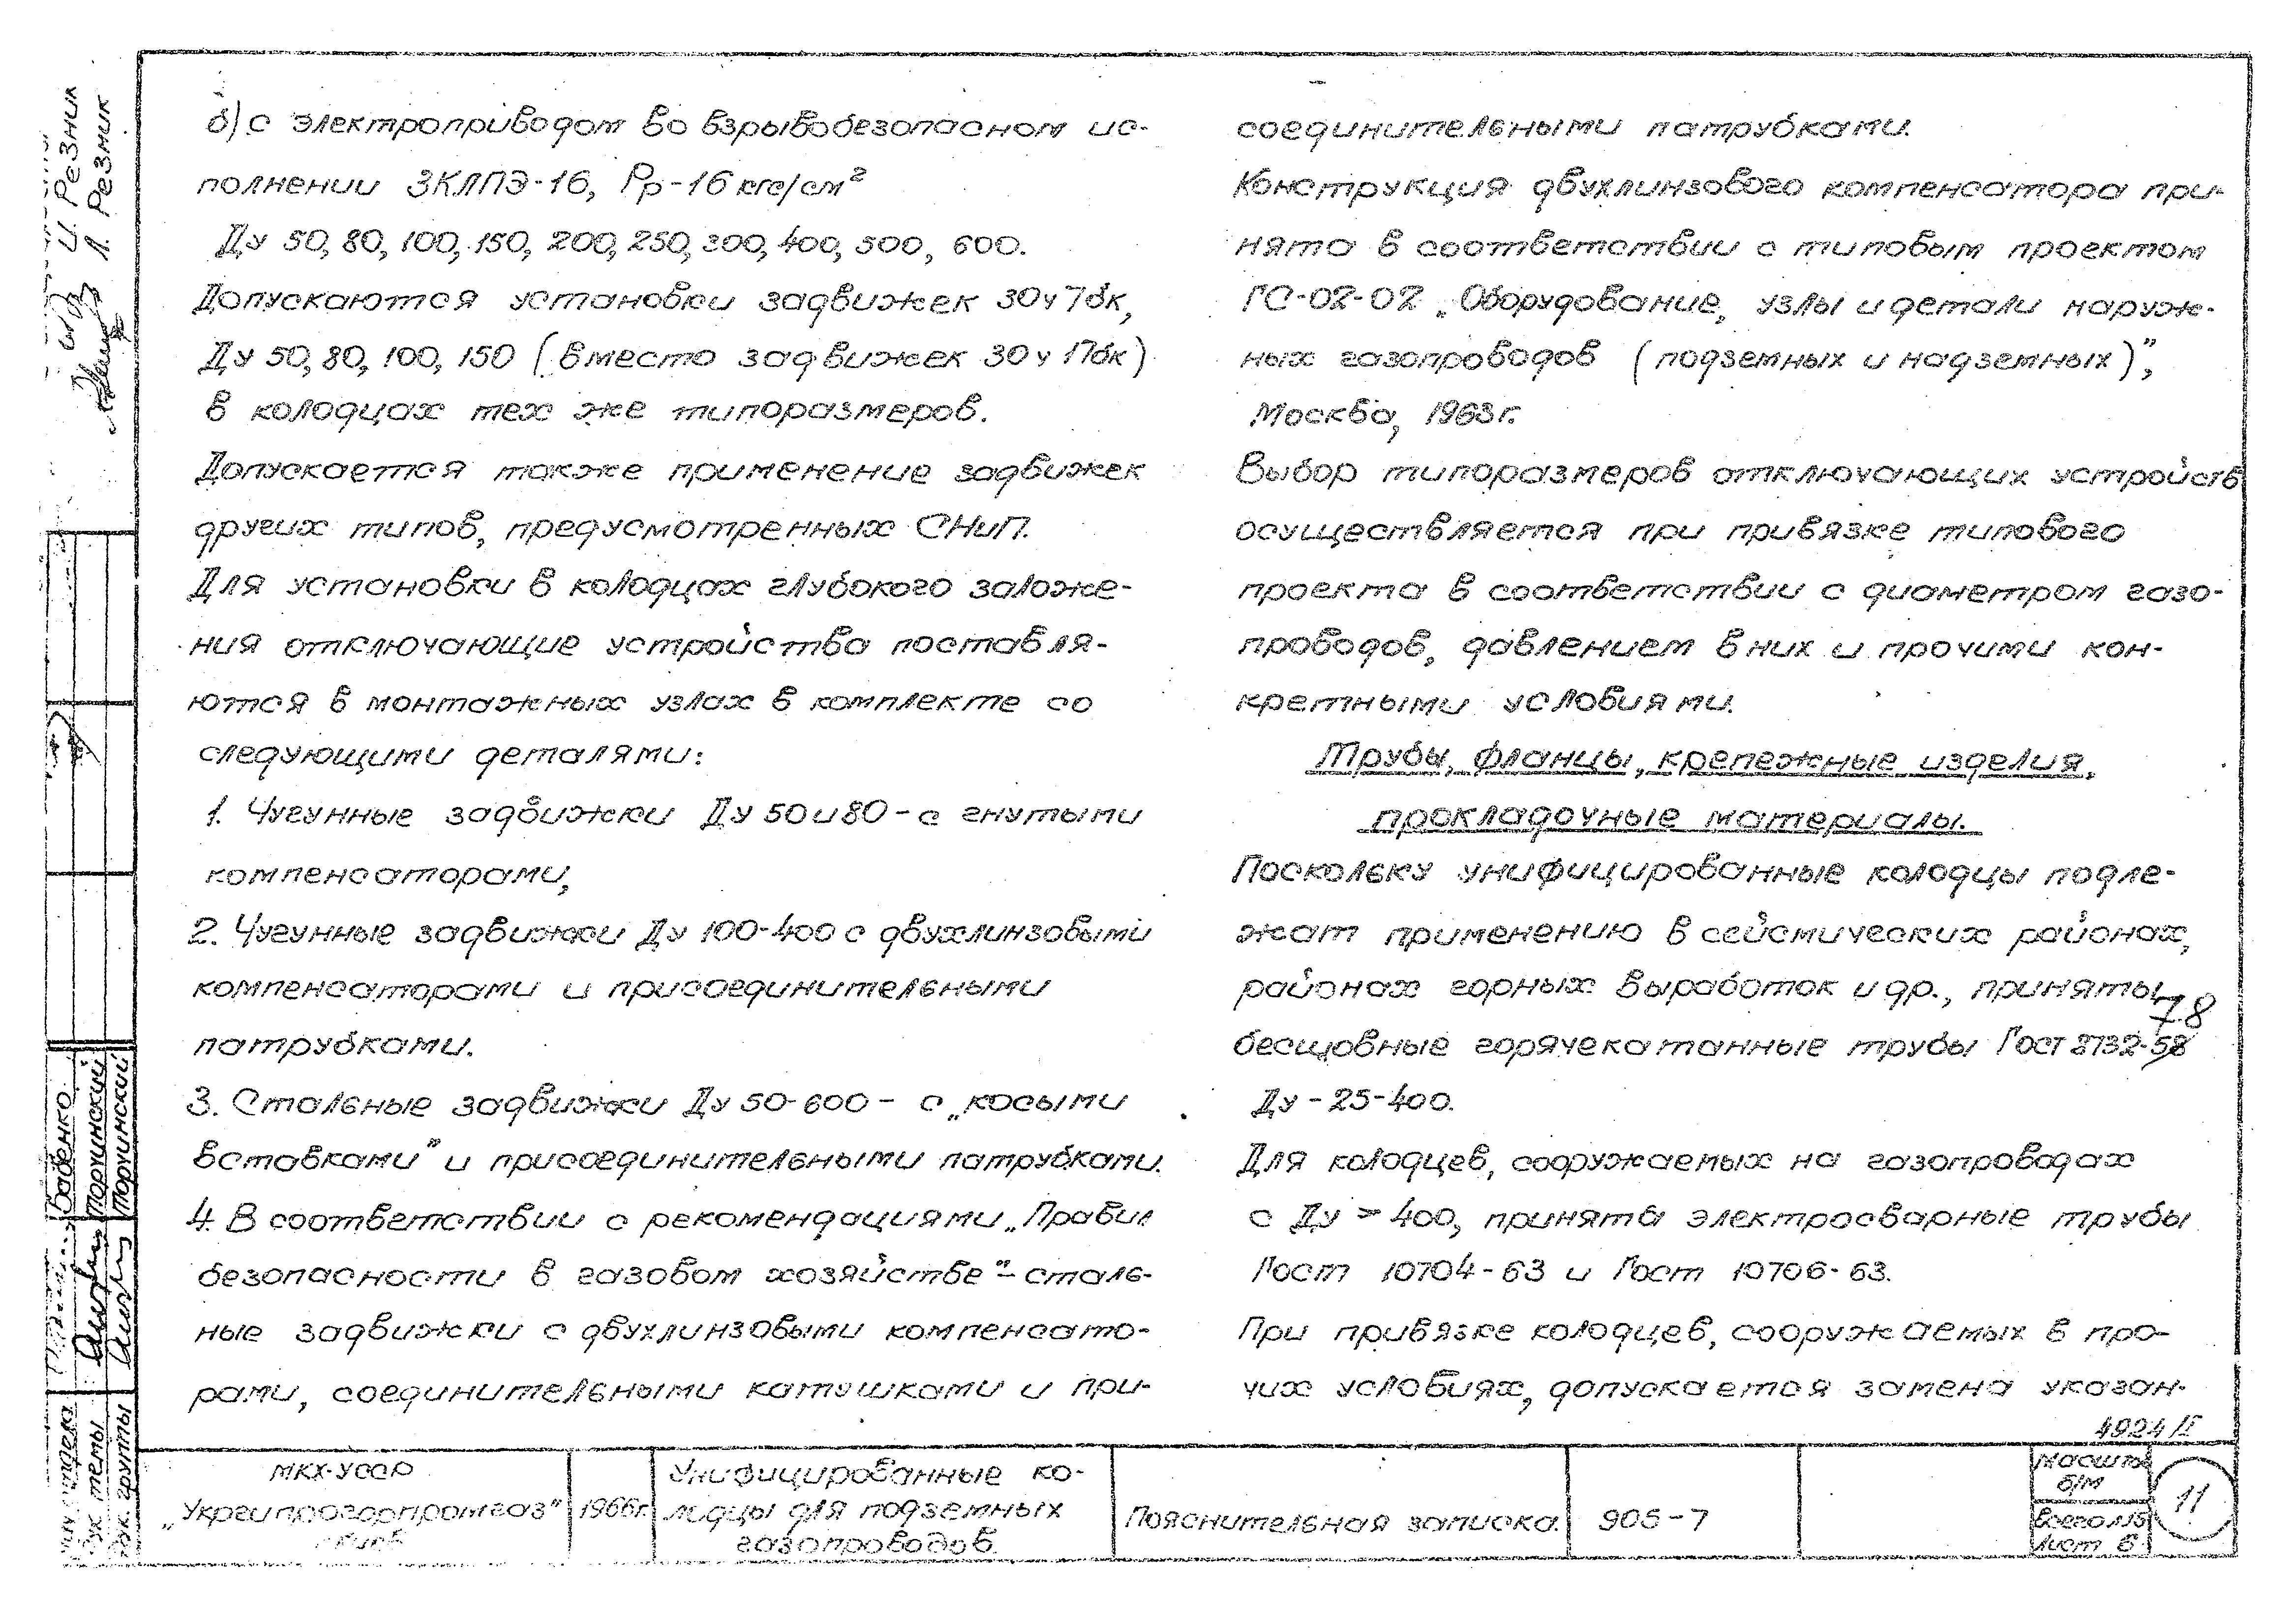 б) с электроприводом во взрывобезопасном ис-
полнении ЗКЛПЭ-16, Рр-16 кгс/см²
Ду 50, 80, 100, 150, 200, 250, 300, 400, 500, 600.
Допускаются установки задвижек 30ч7бк,
Ду 50, 80, 100, 150 (вместо задвижек 30ч17бк)
в колодцах тех же типоразмеров.
Допускается также применение задвижек
других типов, предусмотренных СНиП.
Для установки в колодцах глубокого заложе-
ния отключающие устройства поставля-
ются в монтажных узлах в комплекте со
следующими деталями:
1. Чугунные задвижки Ду 50 и 80 - с гнутыми
компенсаторами,
2. Чугунные задвижки Ду 100-400 с двухлинзовыми
компенсаторами и присоединительными
патрубками.
3. Стальные задвижки Ду 50-600 - с „косыми
вставками" и присоединительными патрубками.
4. В соответствии с рекомендациями „Правил
безопасности в газовом хозяйстве" - сталь-
ные задвижки с двухлинзовыми компенсато-
рами, соединительными катушками и при-
соединительными патрубками.
Конструкция двухлинзового компенсатора при-
нята в соответствии с типовым проектом
ГС-02-02 „Оборудование, узлы и детали наруж-
ных газопроводов (подземных и надземных)",
Москва, 1963г.
Выбор типоразмеров отключающих устройств
осуществляется при привязке типового
проекта в соответствии с диаметром газо-
проводов, давлением в них и прочими кон-
кретными условиями.
Трубы, фланцы, крепежные изделия,
прокладочные материалы.
Поскольку унифицированные колодцы подле-
жат применению в сейсмических районах,
районах горных выработок и др., приняты
78
бесшовные горячекатанные трубы Гост 8732-58
Ду - 25-400.
Для колодцев, сооружаемых на газопроводах
с Ду > 400, принята электросварные трубы
Гост 10704-63 и Гост 10706-63.
При привязке колодцев, сооружаемых в про-
чих условиях, допускается замена указан-
4924/I
МКХ-УССР
„Укргипрогорпромгаз"
1966г.
Унифицированные ко-
лодцы для подземных
газопроводов.
Пояснительная записка.
905-7
Масштаб
б/м
Всего л.15
Лист 6
11
И. Резник
Л. Резник
Бабенко
Торчинский
Торчинский
отдела
Рук темы
Рук. группы